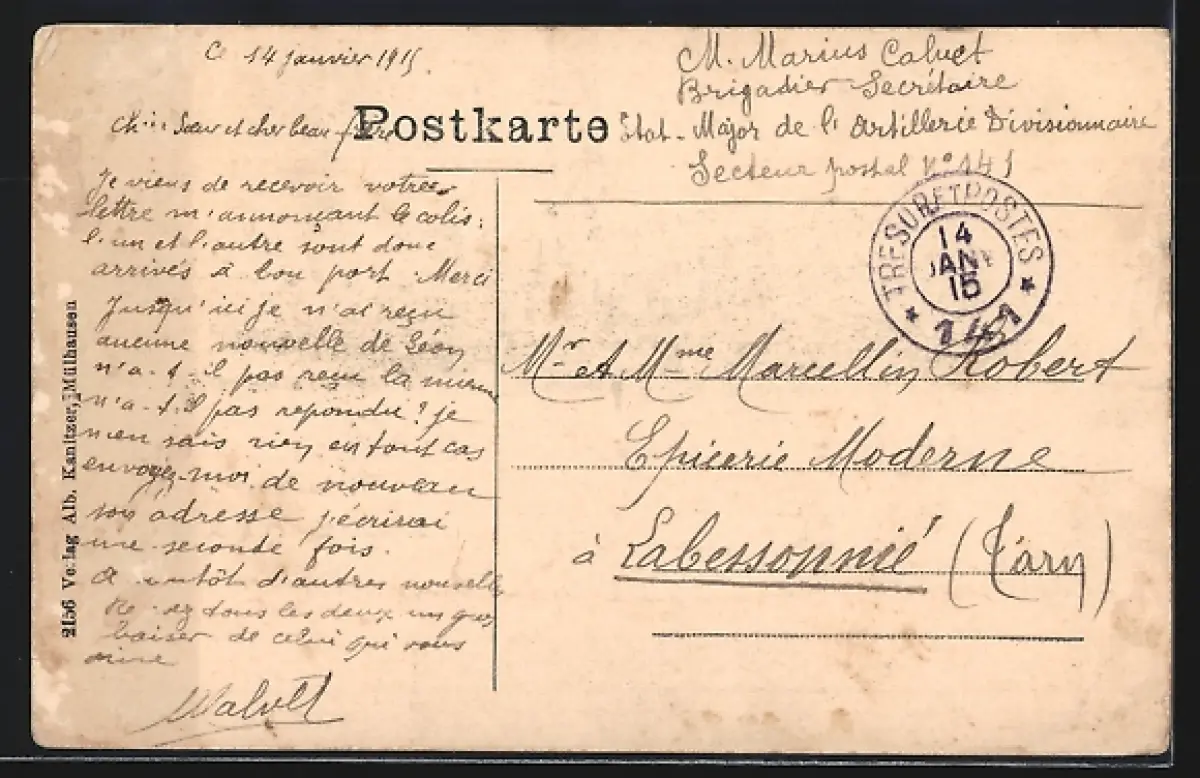 Ce 14 janvier 1915.
Sœur et cher beau-frère
Je viens de recevoir votre
lettre m'annonçant le colis;
l'un et l'autre sont donc
arrivés à bon port. Merci
Jusqu'ici je n'ai reçu
aucune nouvelle de Léon
n'a-t-il pas reçu la mienne
n'a-t-il pas repondu? je
n'en sais rien en tout cas
envoyez-moi de nouveau
son adresse j'écrirai
une seconde fois.
A bientôt d'autres nouvelles
tous les deux un gros
baiser de celui qui vous
aime
MCalvet
Postkarte
M. Marius Calvet
Brigadier Secrétaire
Etat-Major de l'Artillerie Divisionnaire
Secteur postal N° 141
TRESOR ET POSTES
14
JANV
15
* 141 *
Mr et Mme Marcellin Robert
Epicerie Moderne
à Labessonnié (Tarn)
2156 Verlag Alb. Kanitzer, Mülhausen